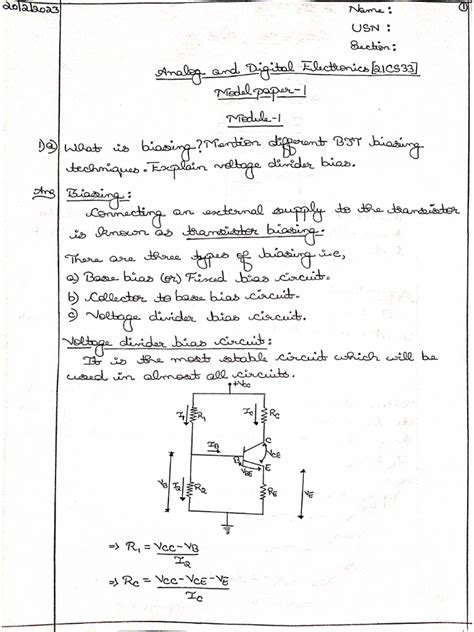 20/2/2023
①
Name :
USN :
Section :
Analog and Digital Electronics [21CS33]
Model paper-1
Module-1
1)a) What is biasing? Mention different BJT biasing
techniques. Explain voltage divider bias.
Ans Biasing :
Connecting an external supply to the transistor
is known as transistor biasing.
There are three types of biasing i.e,
a) Base bias (or) Fixed bias circuit.
b) Collector to base bias circuit.
c) Voltage divider bias circuit.
Voltage divider bias circuit :
It is the most stable circuit which will be
used in almost all circuits.
+Vcc
I1 R1 Ic Rc
IB C
VCE
B E
VBE
VB I2 R2 RE VE
⇒ R1 = VCC - VB
I2
⇒ RC = VCC - VCE - VE
IC